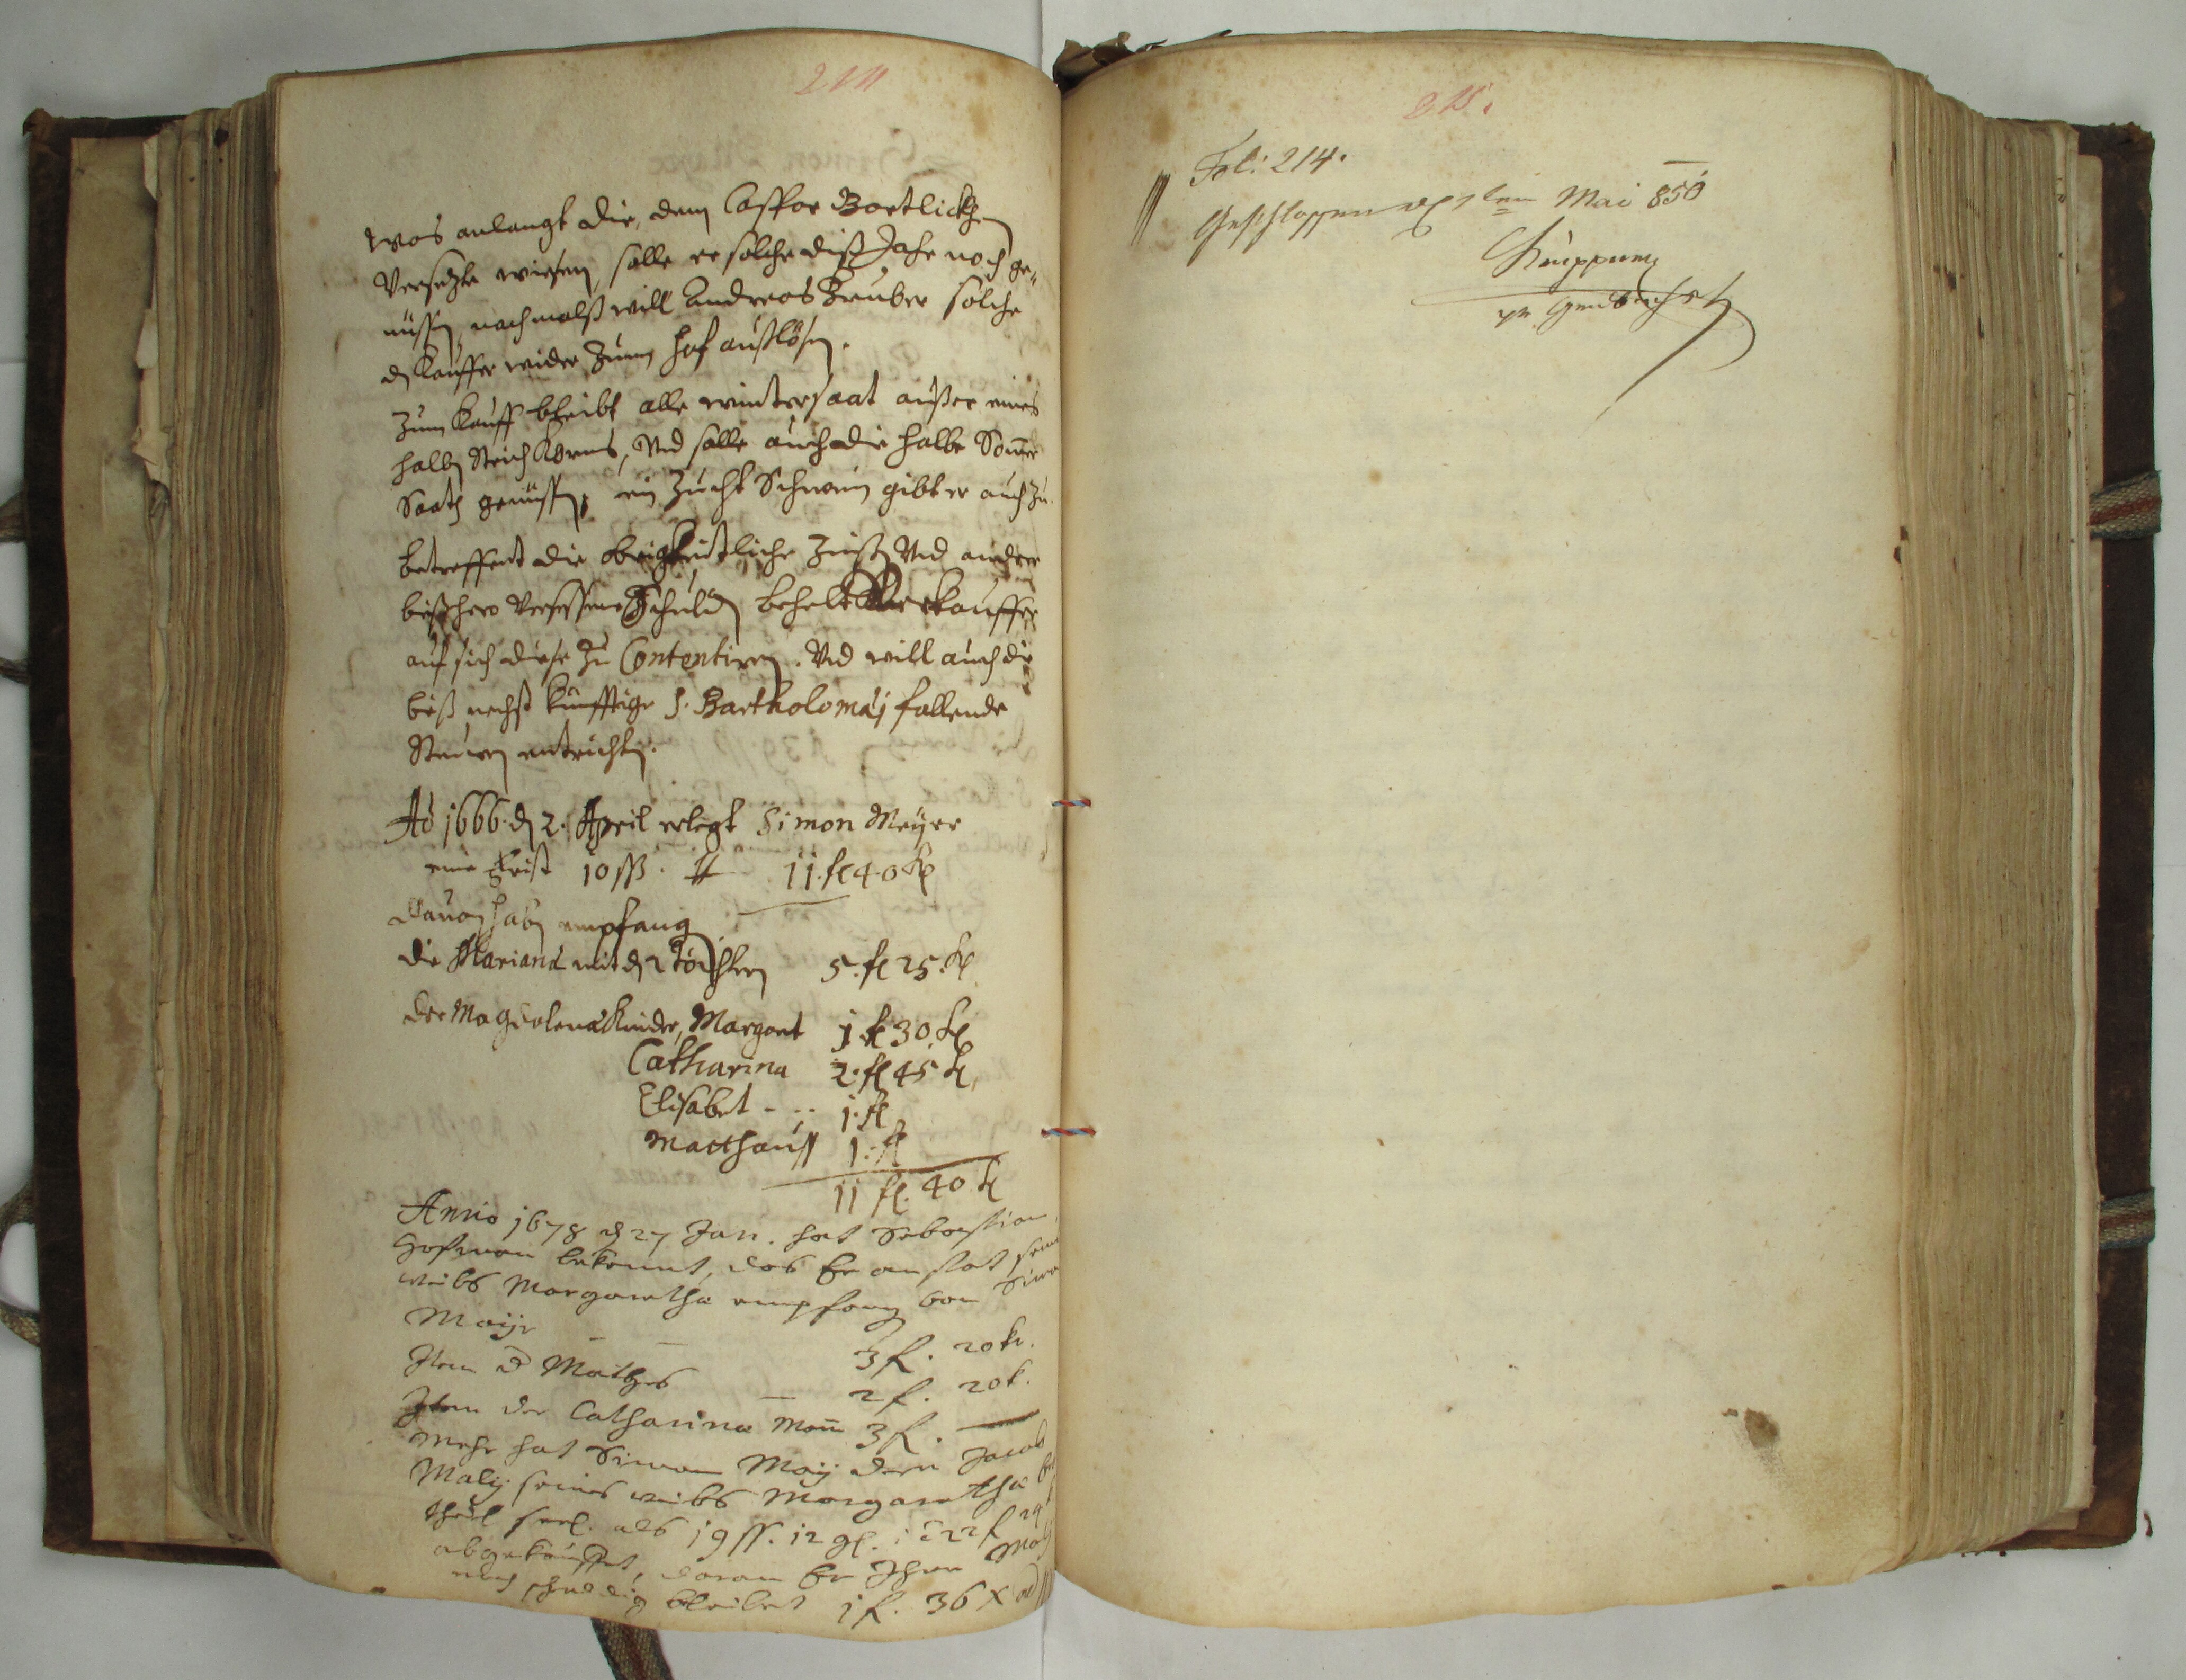 214
Was anlangt die, dem Casspar Bartlickhen
Versetzte wiesen, solle er solche diß Jahr noch ge-
nüssen, nachmalß will Andreas Gruber solche
dem Kauffer wider Zum hof außlösen.
Zum Kauff bleibt alle wintersaat außer eines
halben Strich Korns, Vnd solle auch die halbe Som̄er
Saath genüssen, ein Zucht Schwein gibt er auch zu.
betreffent die obrigkeitliche Zinsen Vnd andere
bißhero Versessene Schulden behelt Verkauffer
auf sich diese Zu Contentiren. Vnd will auch die
biß nechst künfftige S. Bartholomaj fallende
Steuren entrichten.
Aō 1666. den 2. April erlegt Simon Meyer
eine Frist 10 ßß. 11. fl 40 kr
Dauon haben empfangen
die Mariana mit den 2 Töchtern 5. fl 25. kr
der Magdolena Kinder, Margaret 1 fl 30. kr
Catharina 2. fl 45 kr
Elisabet - .. 1. fl
Matthauß 1. fl
11 fl. 40 kr
Anno 1678 den 27 Jan. hat Sebastian
Hofman bekennt, das Er anstat sein
weibs Margaretha empfang von Simon
Mayr — 3 f. 20 kr.
Item d Mathes — 2 f. 20 k.
Item der Catharina Man̄ 3 f. —
Mehr hat Simon May dem Jacob
Maly seines weibs Margaretha
theil als 19 ss. 12 gl. 22 f 24
abgekauffet, daran Er Ihm
noch schuldig bleibet 1 f. 36 x
215.
Fol: 214.
Geschlossen den 1ten Mai 850
Grundbuchsf